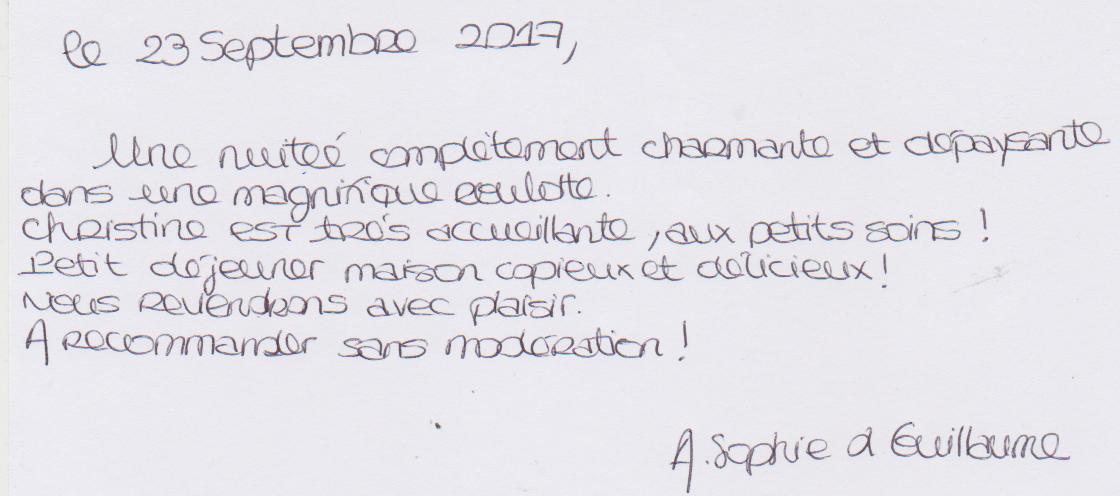 le 23 Septembre 2017,
Une nuiteé complètement charmante et dépaysante
dans une magnifique roulotte.
Christine est très accueillante, aux petits soins !
Petit déjeuner maison copieux et délicieux !
Nous Revendrons avec plaisir.
A Recommander sans modération !
A. Sophie & Guillaume